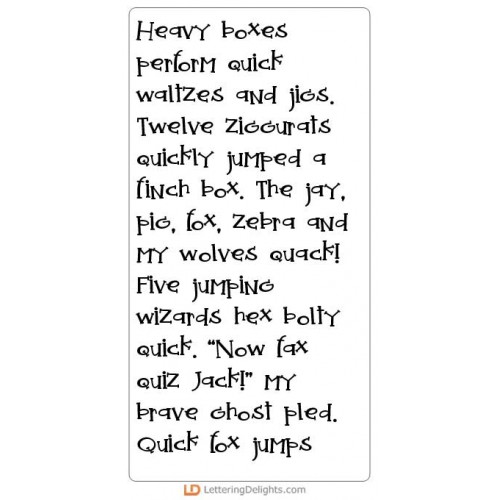 Heavy boxes
perform quick
waltzes and jigs.
Twelve ziggurats
quickly jumped a
finch box. The jay,
pig, fox, zebra and
my wolves quack!
Five jumping
wizards hex bolty
quick. "Now fax
quiz Jack!" my
brave ghost pled.
Quick fox jumps
LD LetteringDelights.com